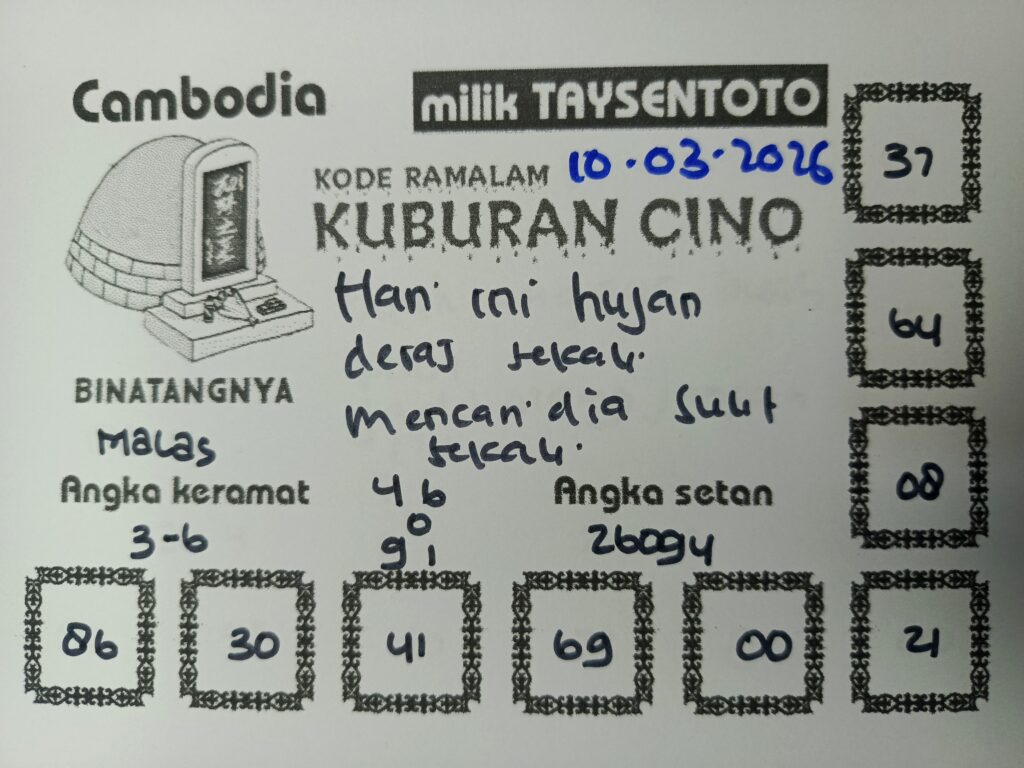 Cambodia
milik TAYSENTOTO
KODE RAMALAM 10.03.2026
KUBURAN CINO
Hari ini hujan
deras sekali
mencari dia sulit
sekali
BINATANGNYA
MALAS
Angka keramat
3-6
46
0
91
Angka setan
26094
37
64
08
86 30 41 69 00 21